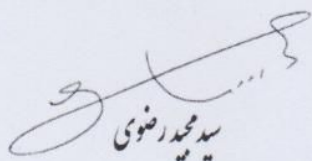 سید مجید رضوی